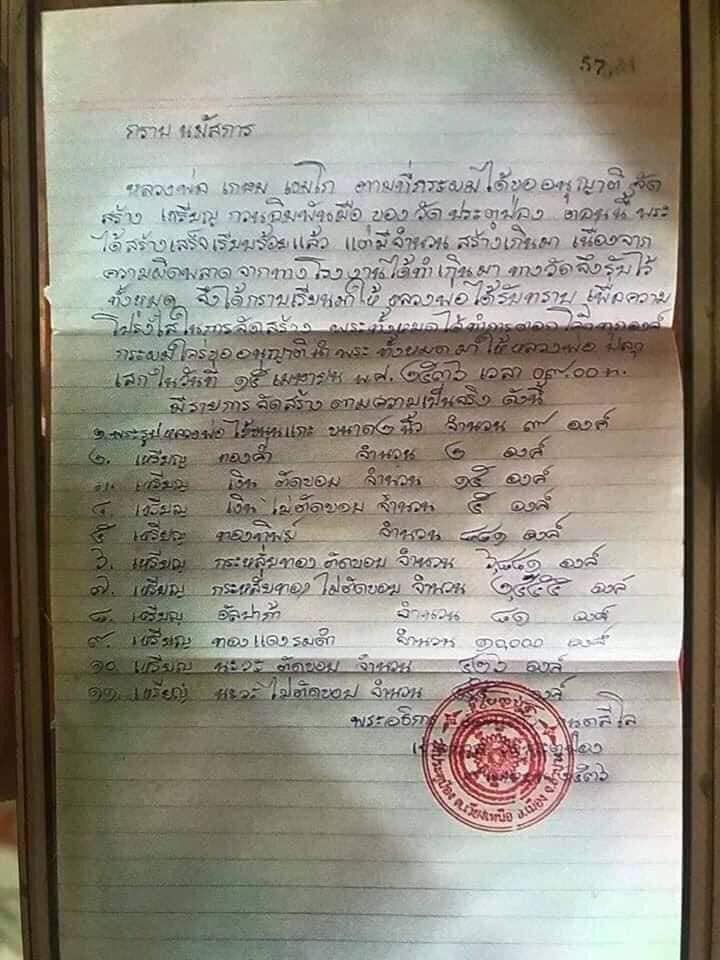 กราบ นมัสการ
หลวงพ่อ เกษม เขมโก ตามที่กระผมได้ขออนุญาติ จัด
สร้าง เหรียญ กวนอิมพันมือ ของ วัด ประตูป่อง ตอนนี้ พระ
ได้สร้างเสร็จเรียบร้อยแล้ว แต่มีจำนวน สร้างเกินมา เนื่องจาก
ความผิดพลาด จากทางโรงงานได้ทำเกินมา ทางวัดจึงรับไว้
ทั้งหมด จึงได้กราบเรียนมาให้ หลวงพ่อได้รับทราบ เพื่อความ
โปร่งใสในการจัดสร้าง พระทั้งหมดได้ทำการตอกโค๊ตทุกองค์
กระผมใคร่ขออนุญาตินำ พระ ทั้งหมดมาให้หลวงพ่อ ปลุก
เสก ในวันที่ ๑๕ เมษายน พ.ศ. ๒๕๓๖ เวลา ๐๙.๐๐ น.
มีรายการ จัดสร้าง ตามความเป็นจริง ดังนี้
๑. พระรูปหลวงพ่อ ไม้ขนุนแกะ ขนาด ๒ นิ้ว จำนวน ๙ องค์
๒. เหรียญ ทองคำ จำนวน ๒ องค์
๓. เหรียญ เงิน ตัดขอบ จำนวน ๑๕ องค์
๔. เหรียญ เงิน ไม่ตัดขอบ จำนวน ๕ องค์
๕. เหรียญ ทองทิพย์ จำนวน ๔๔๑ องค์
๖. เหรียญ กระหลั่ยทอง ตัดขอบ จำนวน ๖,๘๘๑ องค์
๗. เหรียญ กระหลั่ยทอง ไม่ตัดขอบ จำนวน องค์
๘. เหรียญ อัลปาก้า จำนวน ๘๑ องค์
๙. เหรียญ ทองแดงรมดำ จำนวน ๑๐,๐๐๐ องค์
๑๐. เหรียญ นะวะ ตัดขอบ จำนวน ๕๒๖ องค์
๑๑. เหรียญ นะวะ ไม่ตัดขอบ จำนวน องค์
พระอธิการ
๒๕๓๖
ต.เวียงเหนือ อ.เมือง จ.ลำปาง